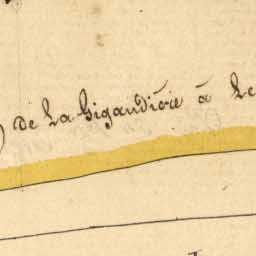 de La Gigandière à Le